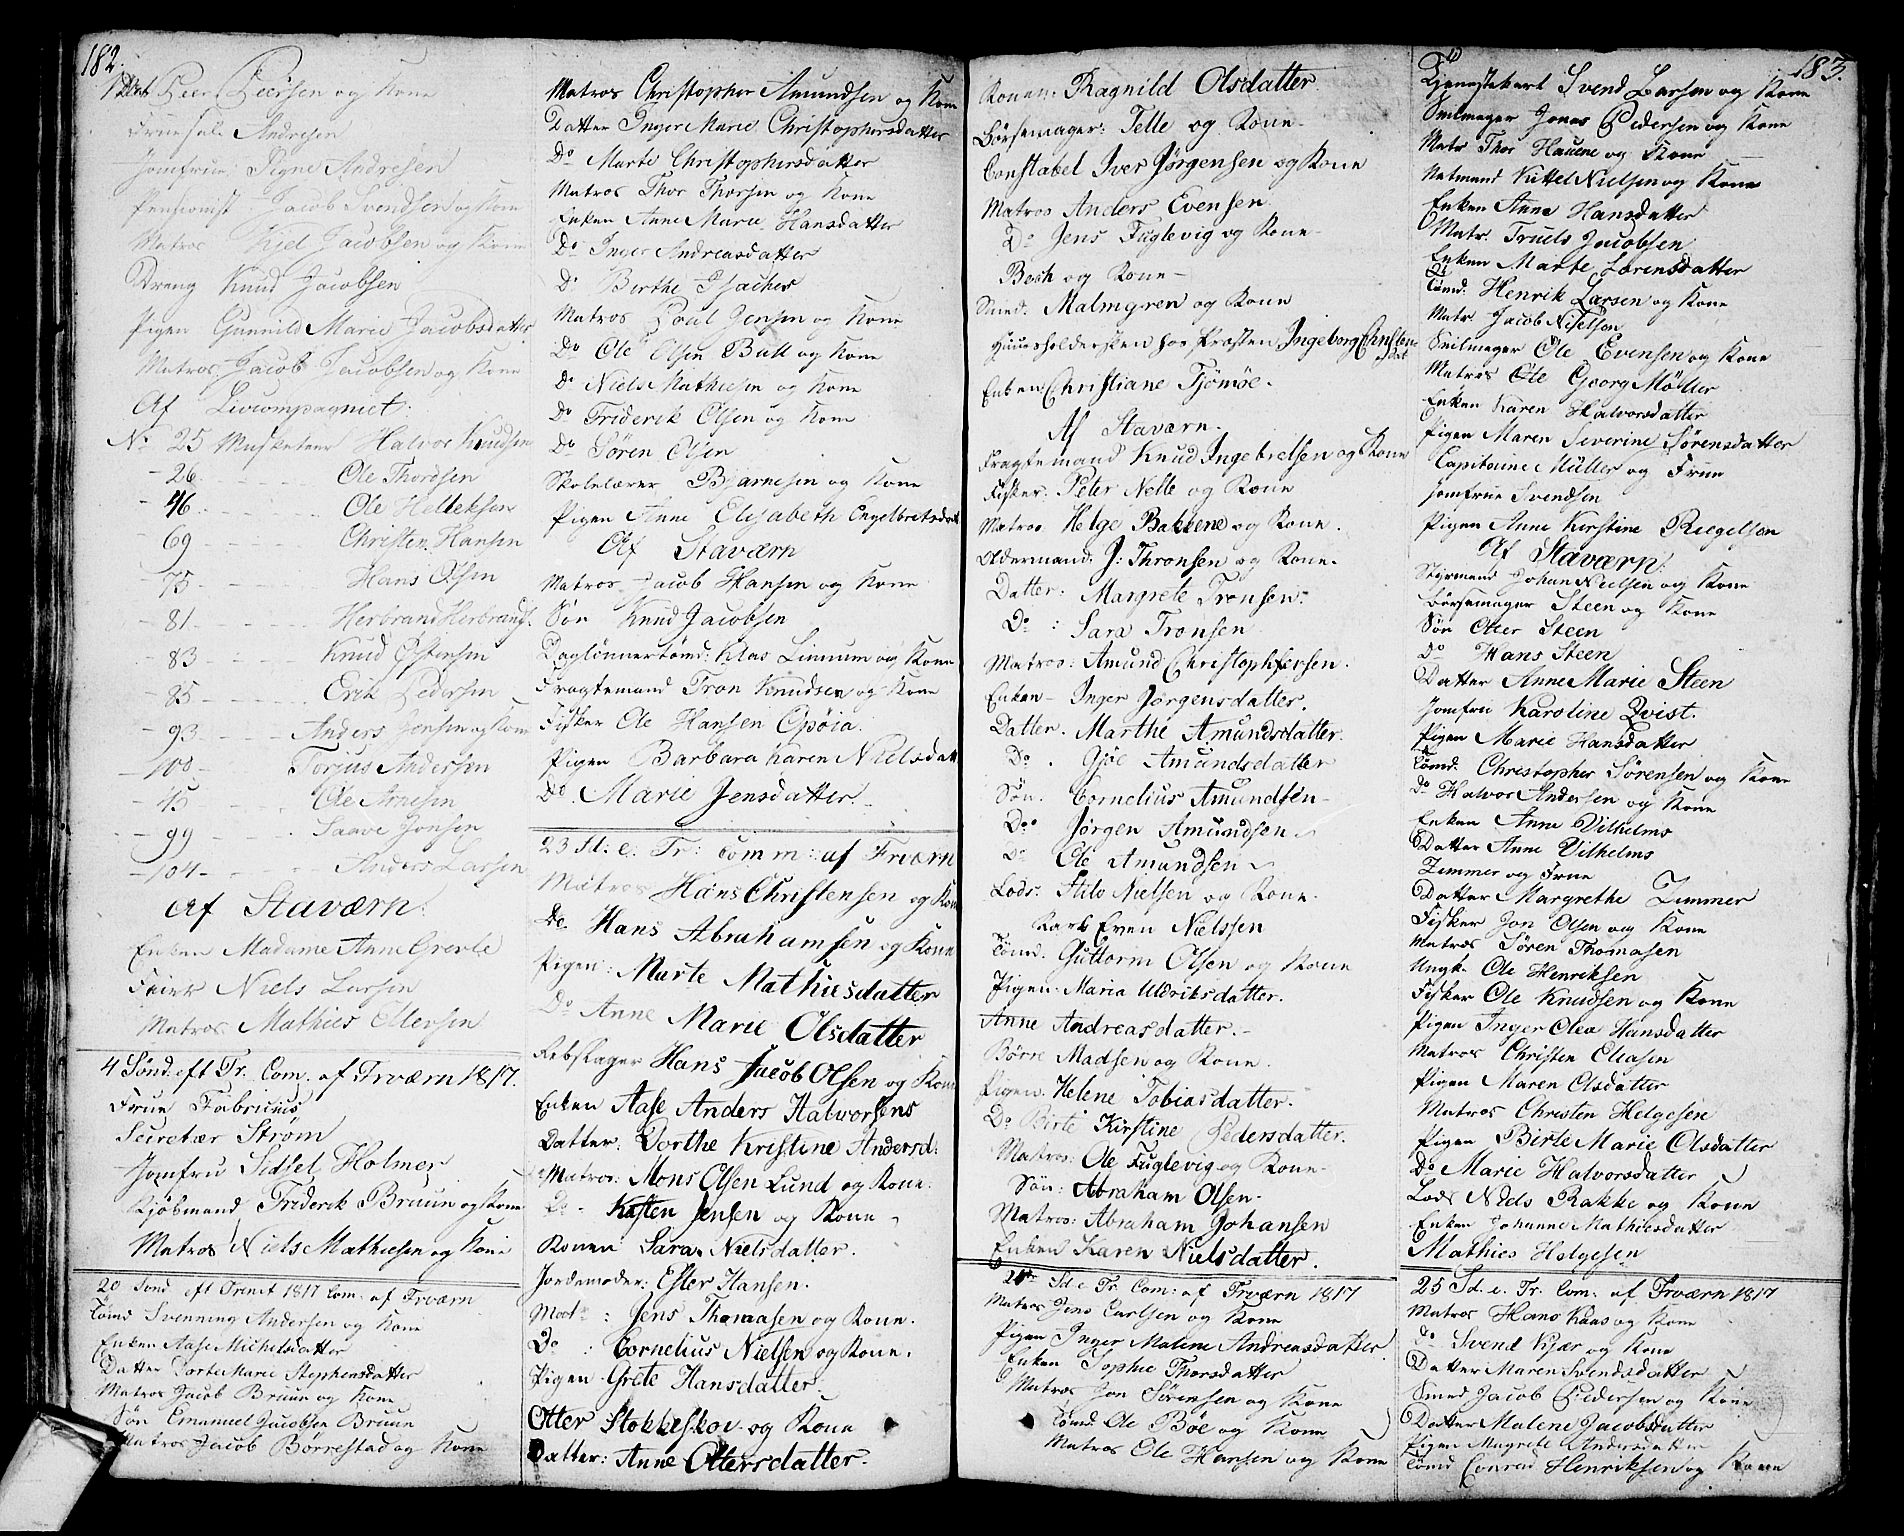 182.
Peer Peersen og Kone
Andresen
Jomfrue Signe Andresen
Pensionist Jacob Svendsen og Kone
Matros Kiel Jacobsen og Kone
Dreng Knud Jacobsen
Pigen Gunnild Marie Jacobsdatter
Matros Jacob Jacobsen og Kone
Af Livcompagniet:
No 25 Musketeer Halvor Knudsen
- 26 Ole Thordsen
- 46 Ole Helleksen
69 Christen Hansen
75 Hans Olsen
- 81 Herbrand Herbrands.
- 83 Knud Østensen
- 85 Erik Pedersen
- 93 Anders Jensen og Kone
- 100 Torjus Andersen
- 45 Ole Arnesen
- 99 Saave Jonsen
- 104 Anders Larsen
Af Staværn:
Enken Madame Anne Grerte
Niels Larsen
Matros Mathies Ottersen
4 Sønd: eft Tr. Com. af Frværn 1817.
Frue Fabrius
Secretær Strøm
Jomfru Sidsel Holmer
Kjøbmand Friderik Bruun og Kone
Matros Niels Mathiesen og Kone
20 Sond eft Trinit 1817 Com. af Frværn
Tømd Svenning Andersen og Kone
Enken Aase Michelsdatter
Datter Dorte Marie Stephensdatter
Matros Jacob Bruun og Kone
Søn Emanuel Jacobsen Bruun
Matros Jacob Børrestad og Kone
Matros Christopher Amundsen og Kone
Datter Inger Marie Christophersdatter
Do Marte Christophersdatter
Matros Thor Thorsen og Kone
Enken Anne Marie Hansdatter
Do Inger Andreasdatter
Do Birthe
Matros Poul Jensen og Kone
Do Ole Olsen Bull og Kone
Do Niels Mathiesen og Kone
Do Friderik Olsen og Kone
Do Sören Olsen
Skolelærer Bjarnesen og Kone
Pigen Anne Elisabeth Engelbretsdat
Af Staværn
Matros Jacob Hansen og Kone
Søn Knud Jacobsen
Daglønnertømd: Klas Linnum og Kone
Fragtemand Tron Knudsen og Kone
Fisker Ole Hansen Opøia.
Pigen Barbara Karen Nielsdatt
Do Marie Jensdatter.
23 St: e: Tr: Comm: af Frværn
Matros Hans Christensen og Kone
Do Hans Abrahamsen og Kone
Pigen: Marte Mathiesdatter
Do Anne Marie Olsdatter
Rebslager Hans Jacob Olsen og Kone
Enken Aase Anders Halvorsens
Datter: Dorthe Kristine Andersd:
Matros: Mons Olsen Lund og Kone.
Do - Kasten Jensen og Kone
Konen Sara Nielsdatter.
Jordemoder: Ester Hansen.
Mat: Jens Thomasen og Kone.
Do : Cornelius Nielsen og Kone.
Pigen Grete Hansdatter
Otter Stokkeskov og Kone
Datter: Anne Ottersdatter.
Konen: Ragnild Olsdatter.
Børsemager: Telle og Kone
Constabel Iver Jørgensen og Kone
Matros Anders Evensen.
Do Jens Fuglevig og Kone
Bosh og Kone
Smed. Malmgren og Kone
Huusholdersken hos Præsten Ingeborg Christens dat
Enken: Christiane Tjömöe.
Af Staværn.
Fragtemand Knud Ingebretsen og Kone
Fisker: Peter Nelle og Kone
Matros Helge Bakkene og Kone.
Oldermand: J: Thronsen og Kone.
Datter: Margrete Tronsen.
Do : Sara Tronsen
Matros: Amund Christophersen.
Enken - Inger Jørgensdatter.
Datter. Marthe Amundsdatter.
Do . Gjøe Amundsdatter
Søn. Cornelius Amundsen
Do Jørgen Amundsen
Do Ole Amundsen
Lods. Stils Nielsen og Kone.
Karl Even Nielssen
Tömd. Guttorm Olsen og Kone
Pigen: Maria Uldriksdatter.
Anne Andreasdatter.
Börre Madsen og Kone.
Pigen. Helene Tobiasdatter.
Do Birte Kirstine Pedersdatter.
Matros: Ole Fuglevig og Kone
Søn: Abraham Olsen.
Matros: Abraham Johansen
Enken Karen Nielsdatter.
Sd. e. Tr. Com: af Frværn 1817
Matros Jens Carlsen og Kone
Pigen Inger Malene Andreasdatter
Enken Sophie Thorsdatter
Matros Jon Sörensen og Kone
Tømd. Ole Bøe og Kone
Matros Ole Hansen og Kone
183.
Svend Larsen og Kone
Seilmager Jonas Pedersen og Kone
Matr Thor Hauene og Kone
Natmand Kittel Nielsen og Kone
Enken Anne Hansdatter
Matr. Truels Jacobsen
Enken Marte Lorensdatter
Tømd. Henrik Larsen og Kone
Matr. Jacob Nielsen
Seilmager Ole Evensen og Kone
Matros Ole Georg Møller
Enken Karen Halvorsdatter
Pigen Maren Severine Sørensdatter
Capitaine Müller og Frue
Jomfrue Svendsen
Pigen Anne Kirstine Riegelsen
Af Staværn:
Styrmand Johan Nielsen og Kone
Børsemager Steen og Kone
Søn Otter Steen
Do Hans Steen
Datter Anne Marie Steen
Jomfru Karoline Qvist.
Pigen Marie Hansdatter
Tømd. Christopher Sørensen og Kone
Do Halvor Andersen og Kone
Enken Anne Vilhelms
Datter Anne Vilhelms
Zimmer og Frue
Datter Margrethe Zimmer
Fisker Jon Olsen og Kone
Matros Søren Thomasen
Ungk. Ole Henriksen
Fisker Ole Knudsen og Kone
Pigen Inger Olea Hansdatter
Matros Christen Eliasen
Pigen Maren Olsdatter
Matros Christen Helgesen
Pigen Birte Marie Olsdatter
Do Marie Halvorsdatter
Lods Niels Rakke og Kone
Enken Johanne Mathiesdatter
Mathies Helgesen
25 Sd. e. Tr. Com: af Frværn 1817
Matros Hans Kaas og Kone
Do Svend Kjær og Kone
Datter Maren Svendsdatter
Smed Jacob Pedersen og Kone
Datter Malene Jacobsdatter
Pigen Magrete Andersdatter
Tømd Conrad Henriksen og Kone